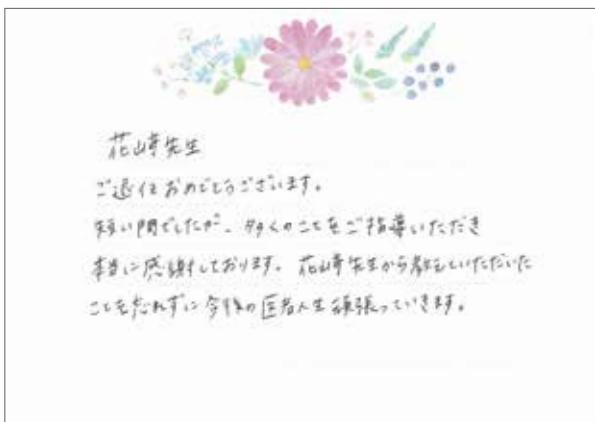 花崎先生
ご退任おめでとうございます。
短い間でしたが、多くのことをご指導いただき
本当に感謝しております。花崎先生から教えていただいた
ことを忘れずに今後の医者人生頑張っていきます。